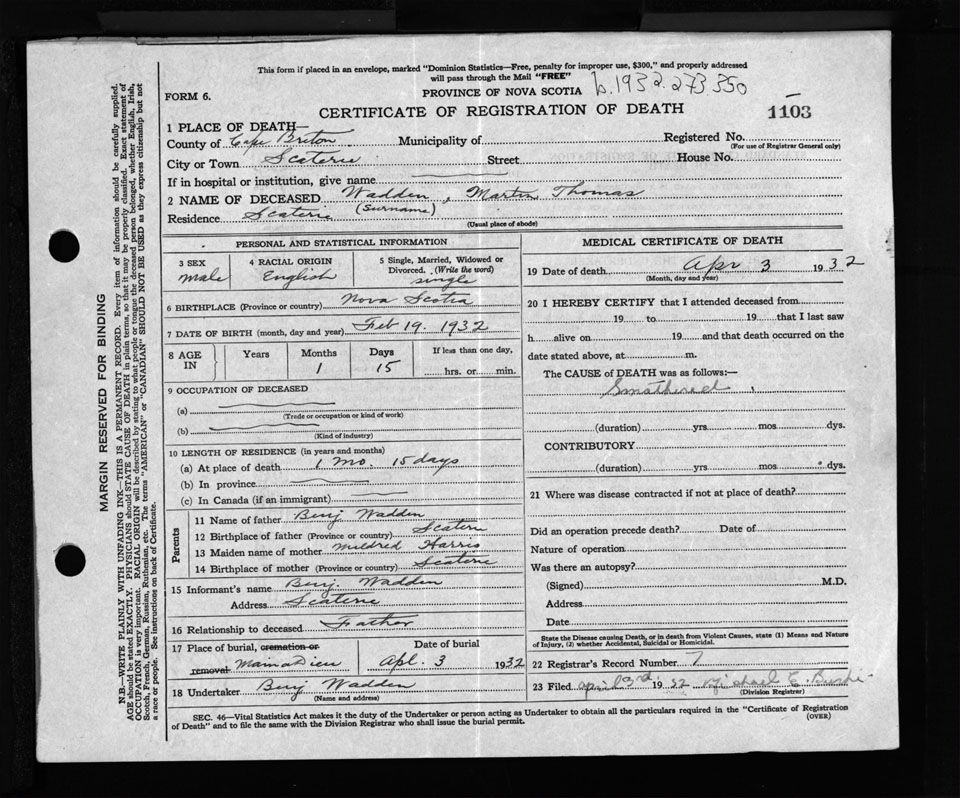 This form if placed in an envelope, marked "Dominion Statistics—Free, penalty for improper use, $300," and properly addressed
will pass through the Mail "FREE"
b.1932.273350
FORM 6.
PROVINCE OF NOVA SCOTIA
CERTIFICATE OF REGISTRATION OF DEATH
1103
1 PLACE OF DEATH—
County of Cape Breton Municipality of Registered No.
(For use of Registrar General only)
City or Town Scaterie Street House No.
If in hospital or institution, give name
2 NAME OF DECEASED Wadden, Martin Thomas
(Surname)
Residence Scaterie
(Usual place of abode)
PERSONAL AND STATISTICAL INFORMATION
3 SEX
male
4 RACIAL ORIGIN
English
5 Single, Married, Widowed or
Divorced. (Write the word)
single
6 BIRTHPLACE (Province or country) Nova Scotia
7 DATE OF BIRTH (month, day and year) Feb 19. 1932
8 AGE IN Years Months Days If less than one day,
1 15 hrs. or min.
9 OCCUPATION OF DECEASED
(a)
(Trade or occupation or kind of work)
(b)
(Kind of industry)
10 LENGTH OF RESIDENCE (in years and months)
(a) At place of death 1 mo. 15 days
(b) In province
(c) In Canada (if an immigrant)
Parents
11 Name of father Benj Wadden
12 Birthplace of father (Province or country) Scaterie
13 Maiden name of mother Mildred Harris
14 Birthplace of mother (Province or country) Scaterie
15 Informant's name Benj. Wadden
Address Scaterie
16 Relationship to deceased Father
17 Place of burial, cremation or
removal Mainadieu
Date of burial
Apl. 3 1932
18 Undertaker Benj Wadden
(Name and address)
MEDICAL CERTIFICATE OF DEATH
19 Date of death Apr 3 1932
(Month, day and year)
20 I HEREBY CERTIFY that I attended deceased from
19 to 19 that I last saw
h alive on 19 and that death occurred on the
date stated above, at m.
The CAUSE of DEATH was as follows:—
Smothered
(duration) yrs. mos. dys.
CONTRIBUTORY
(duration) yrs. mos. dys.
21 Where was disease contracted if not at place of death?
Did an operation precede death? Date of
Nature of operation
Was there an autopsy?
(Signed) M.D.
Address
Date
State the Disease causing Death, or in death from Violent Causes, state (1) Means and Nature
of Injury, (2) whether Accidental, Suicidal or Homicidal.
22 Registrar's Record Number 7
23 Filed April 3rd 1932 Michael E. Burke
(Division Registrar)
SEC. 46—Vital Statistics Act makes it the duty of the Undertaker or person acting as Undertaker to obtain all the particulars required in the "Certificate of Registration
of Death" and to file the same with the Division Registrar who shall issue the burial permit.
(OVER)
MARGIN RESERVED FOR BINDING
N.B.—WRITE PLAINLY WITH UNFADING INK—THIS IS A PERMANENT RECORD. Every item of information should be carefully supplied.
AGE should be stated EXACTLY. PHYSICIANS should STATE CAUSE OF DEATH in plain terms, so that it may be properly classified. Exact statement of
OCCUPATION is very important. RACIAL ORIGIN will be described by stating to what people or tongue the deceased person belonged, whether English, Irish,
Scotch, French, German, Russian, Ruthenian, etc. The terms "AMERICAN" or "CANADIAN" SHOULD NOT BE USED as they express citizenship but not
a race or people. See instructions on back of Certificate.